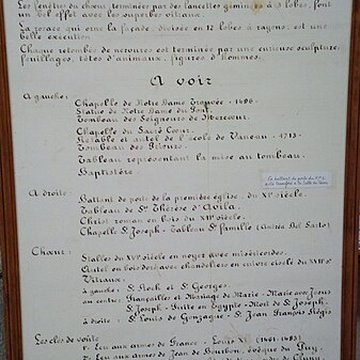 Les fenêtres du choeur, terminées par des lancettes géminées à 3 lobes, font
un bel effet avec les superbes vitraux.
La rosace qui orne la façade, divisée en 12 lobes à rayons, est une
belle exécution.
Chaque retombée de nervures est terminée par une curieuse sculpture,
feuillages, têtes d'animaux, figures d'hommes.
A voir
A gauche:
Chapelle de Notre Dame Trouvée - 1496.
Statue de Notre Dame du Pont.
Tombeau des Seigneurs de Mercoeur.
Chapelle du Sacré Coeur.
Retable et autel de l'école de Vaneau - 1713 -
Tombeau des Prieurs.
Tableau représentant la mise au tombeau.
Baptistère.
Ce battant de porte du XIe s.
A droite:
Battant de porte de la première église, du XIe siècle.
Tableau de Ste Thérèse d'Avila.
Christ roman en bois du XIIe siècle.
Chapelle St Joseph - Tableau Ste famille (Andréa Del Sarto)
Choeur:
Stalles du XVe siècle en noyer avec miséricordes.
Autel en bois doré avec chandeliers en cuivre ciselé du
Vitraux:
à gauche: St Roch et St Georges.
au centre: Fiançailles et Mariage de Marie - Marie avec Jésus
St Joseph - Fuite en Egypte - Mort de St Joseph.
à droite: St Louis de Gonzague - St Jean François Régis
Les clés de voûte
1. Ecu aux armes de France - Louis XI (1461-1483)
Ecu aux armes de Jean de Bourbon, évêque du Puy